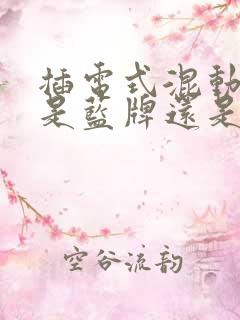 插電式混動
是藍牌還是
空谷流韵